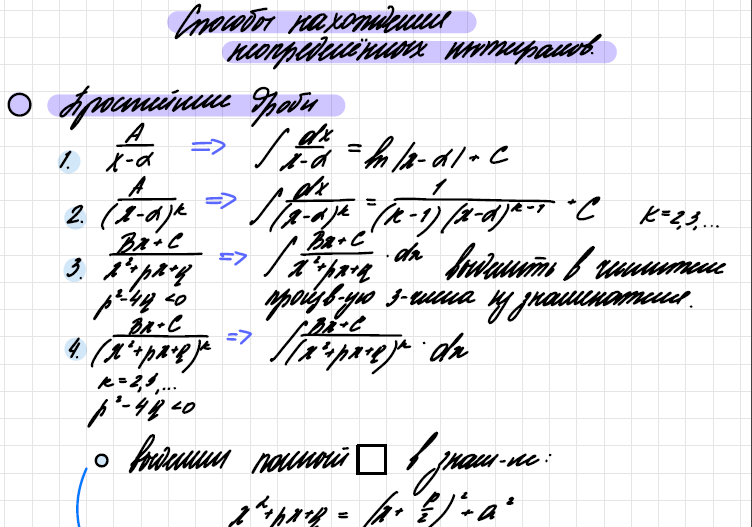 Способы нахождения
неопределённых интегралов.
Простейшие дроби
1. A/(x-α) => ∫ dx/(x-α) = ln|x-α| + C
2. A/(x-α)^k => ∫ dx/(x-α)^k = 1/((k-1)(x-α)^(k-1)) + C k=2,3,...
3. (Bx+C)/(x²+px+q) => ∫ (Bx+C)/(x²+px+q) · dx выделить в числителе
p²-4q<0 произв-ую з-числа из знаменателя.
4. (Bx+C)/(x²+px+q)^k => ∫ (Bx+C)/(x²+px+q)^k · dx
k=2,3,...
p²-4q<0
выделим полный □ в знам-ле:
x²+px+q = (x+p/2)²+a²